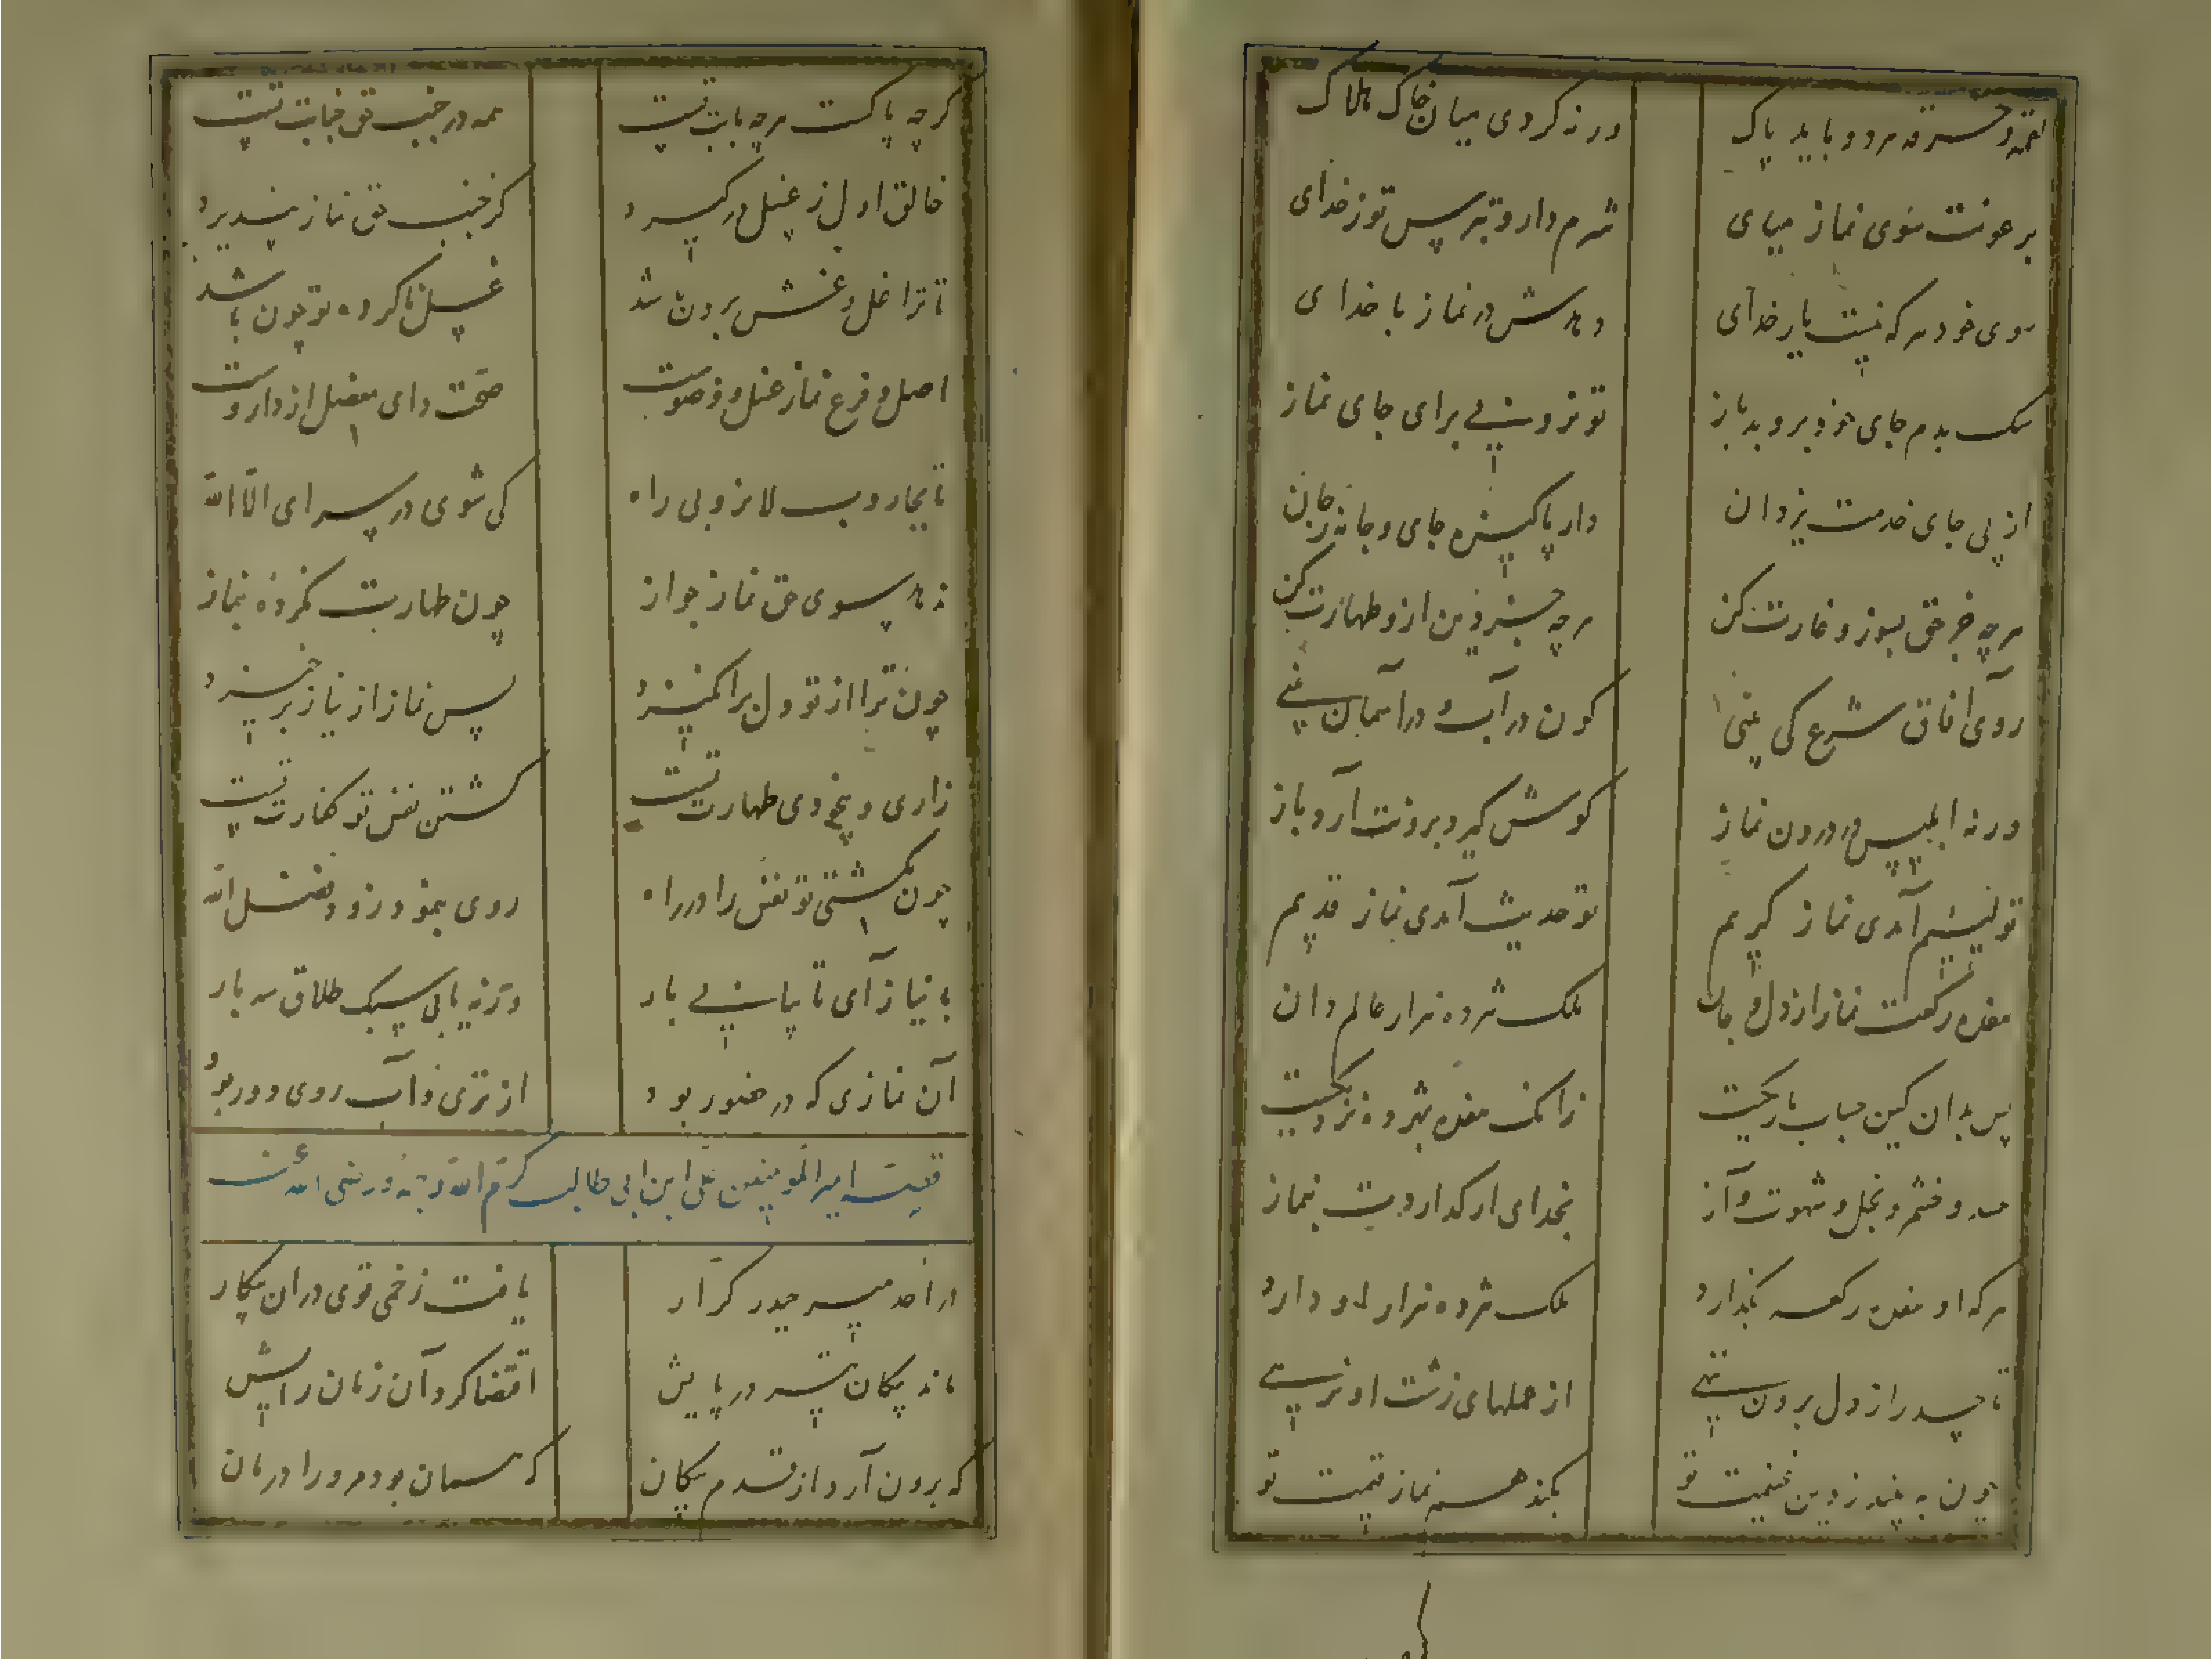 لقمه و خرقه هر دو باید پاک ورنه گردی میان خاک هلاک
برعونت سوی نماز میای شرم دار و بترس تو ز خدای
سوی خود هر که نیست بار خدای دهدش در نماز با خدای
سگ بدم جای خود بروبد باز تو نروبی برای جای نماز
از پی جای خدمت یزدان دار پاکیزه جای و جامه و جان
هرچه جز حق بسوز و غارت کن هرچه جز دین ازو طهارت کن
روی آفاق شرع کی بینی کون در آب و در آسمان بینی
ورنه ابلیس در درون نماز گوش گیرد برونت آرد باز
تو لئیم آمدی نماز کریم تو حدیث آمدی نماز قدیم
هفده رکعت نماز از دل و جان ملک هژده هزار عالم دان
پس بدان کین حساب باریکست زانک هفده بهژده نزدیکست
حسد و خشم و بخل و شهوت و آز بخدای ار گذاردت بنماز
هر که او هفده رکعه بگذارد ملک هژده هزار او دارد
تا حسد را ز دل برون نهی از عملهای زشت او نرهی
چون به بیند ز دین غنیمت تو بکند هم نماز قیمت تو
گرچه پاکست هرچه بابت تست همه در جنب حق جنابت تست
خالق اول ز غسل در گیرد کز جنب حق نماز نپذیرد
تا ترا غل و غش برون باشد غسل ناکرده تو چون باشد
اصل و فرع نماز غسل و وضوست صحت داء معضل از داروست
تا بجاروب لا نروبی راه کی شوی در سرای الا الله
ندهد سوی حق نماز جواز چون طهارت نکرده بنماز
چون ترا از تو دل برانگیزد پس نماز از نیاز برخیزد
زاری و بیخودی طهارت تست کشتن نفس تو کفارت تست
چون بکشتی تو نفس را در راه روی بنمود زود فضل اله
با نیاز آی تا بیابی بار ورنه یابی سبک طلاق سه بار
آن نمازی که در حضور بود از تری و آب روی دور بود
قصه امیر المومنین علی ابن ابی طالب کرم الله وجهه و رضی الله عنه
در احد میر حیدر کرار یافت زخمی قوی در آن پیکار
ماند پیکان تیر در پایش اقتضا کرد آن زمان رایش
که برون آرد از قدم پیکان که همان بود مرورا درمان